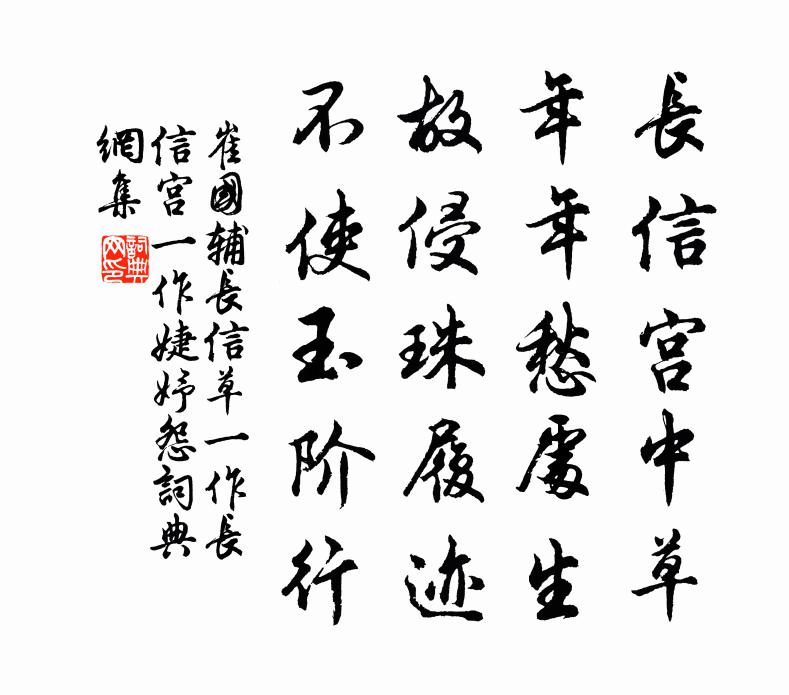 長信宫中草
年年愁處生
故侵珠履迹
不使玉阶行
崔國辅長信草一作長
信宫一作婕妤怨詞典
網集
詞典
网印